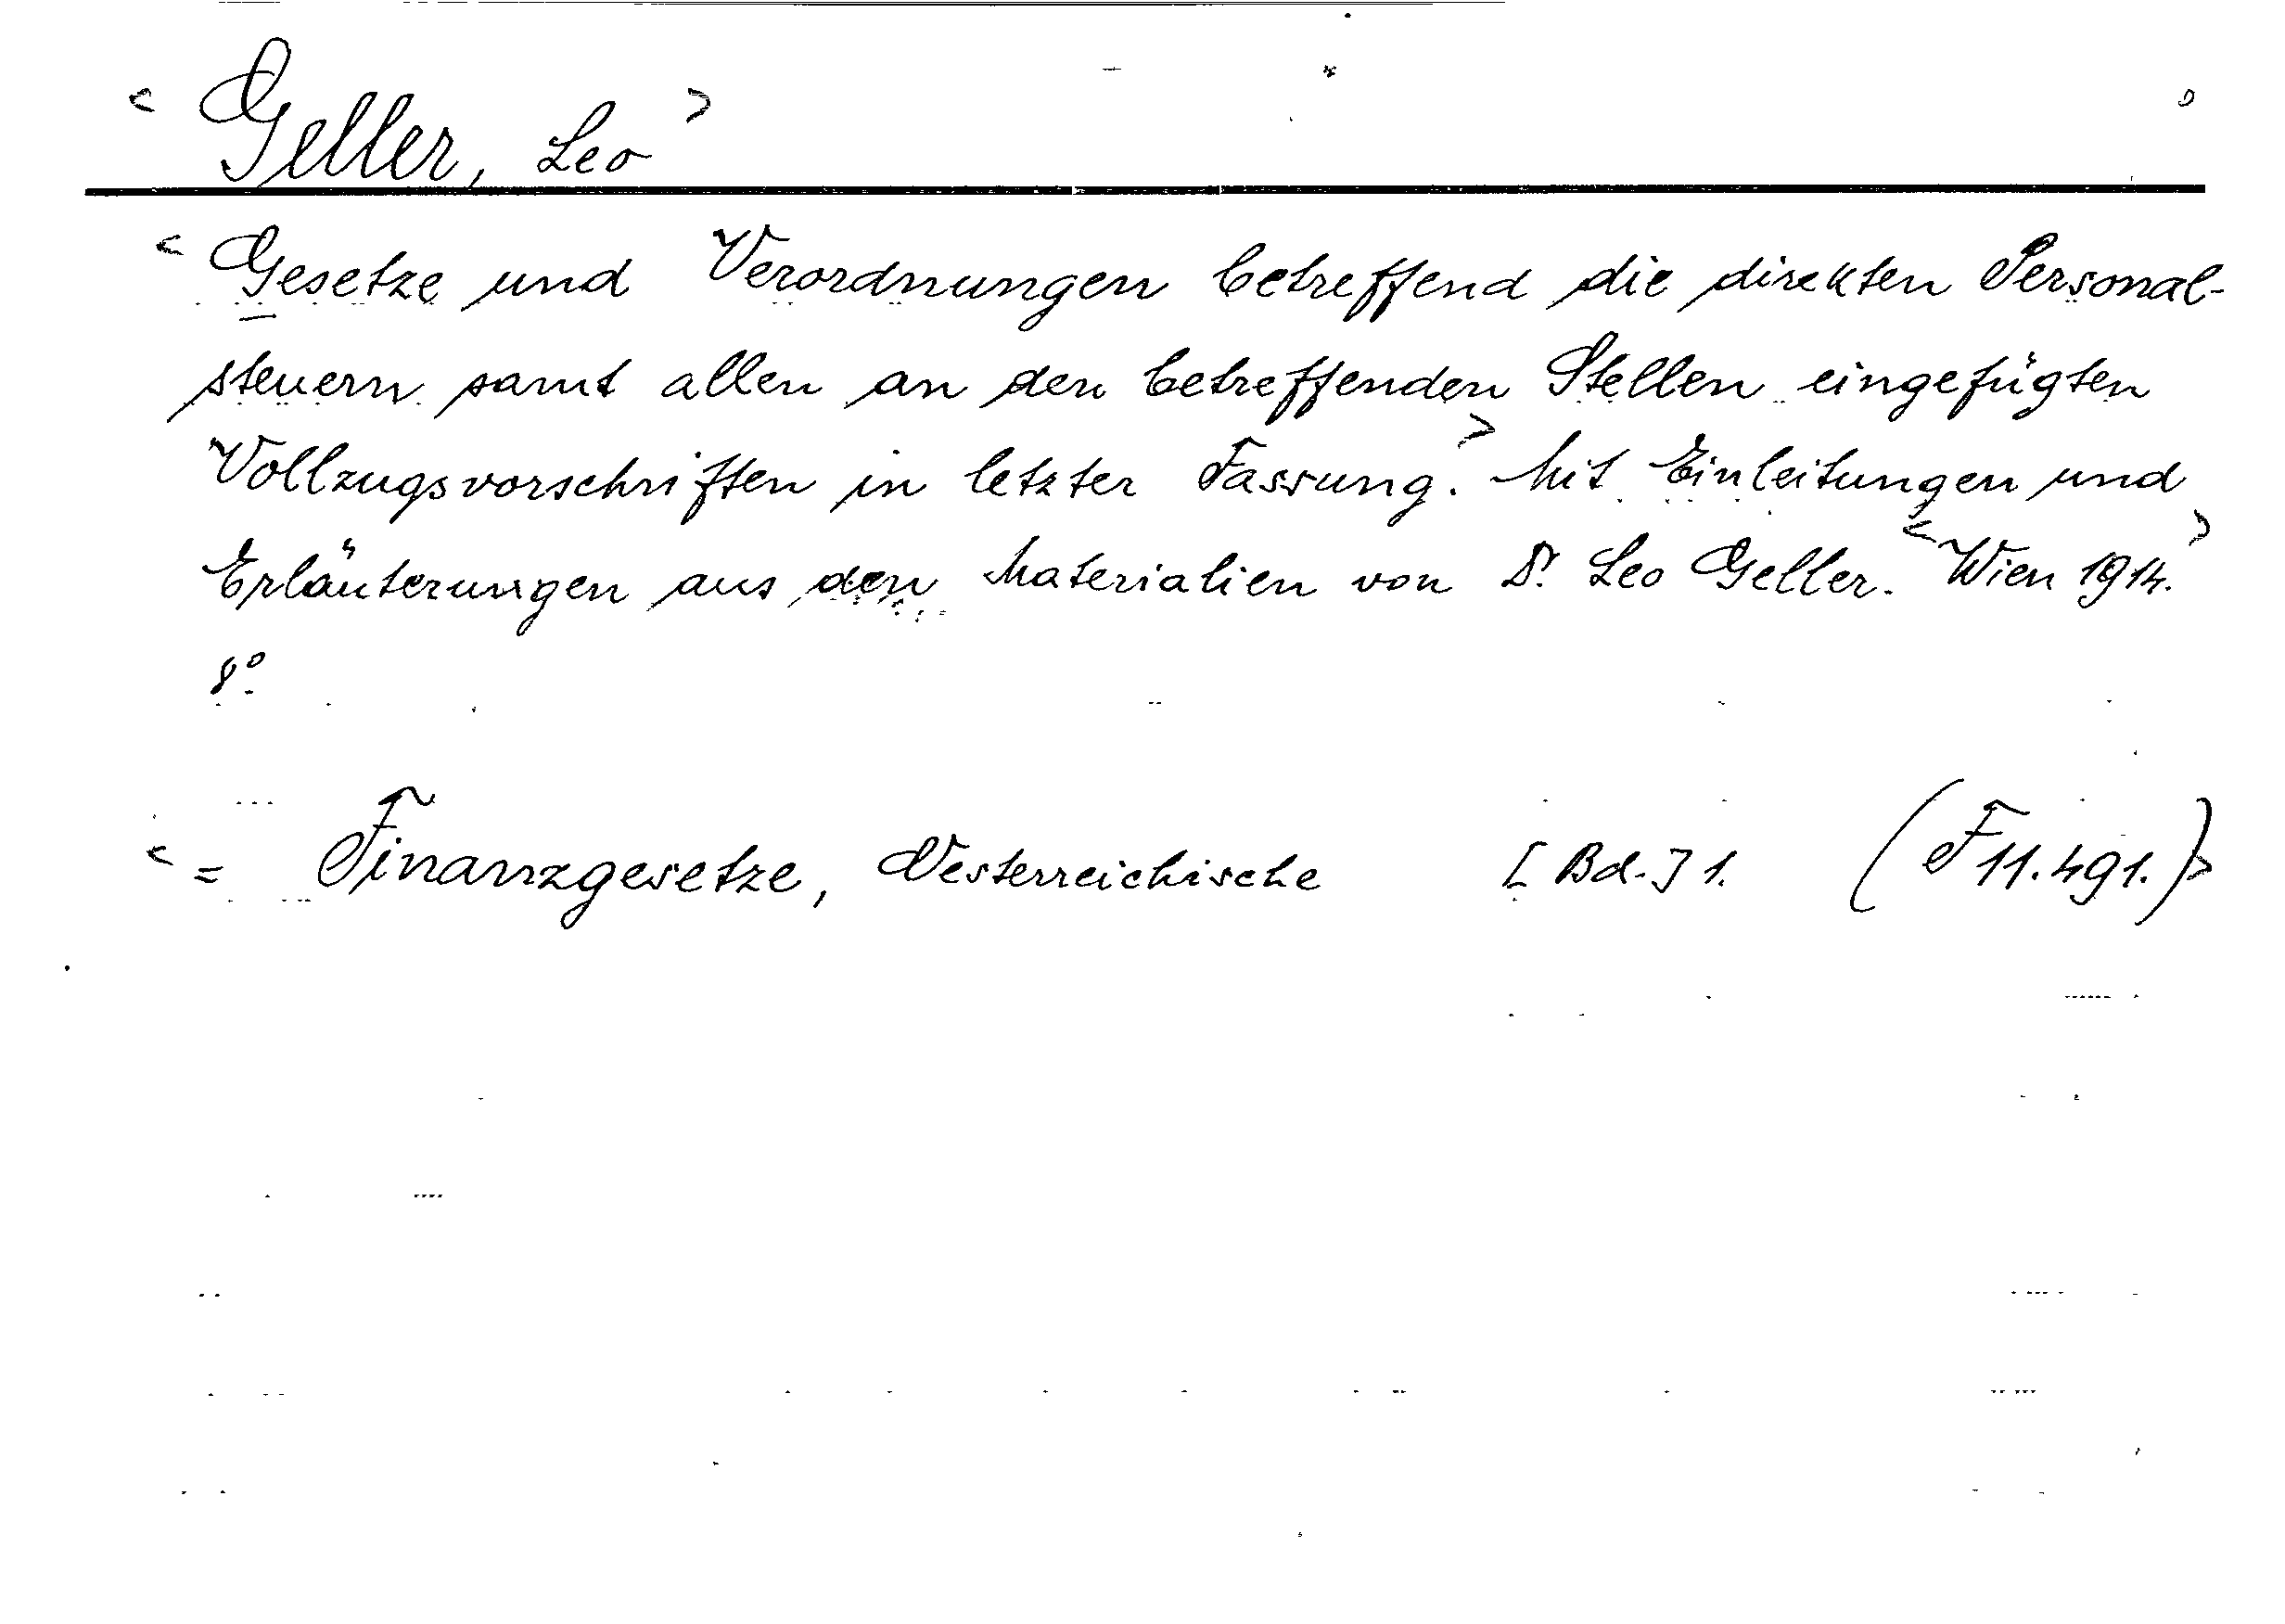 < Geller, Leo >
< Gesetze und Verordnungen betreffend die direkten Personal-
steuern samt allen an den betreffenden Stellen eingefügten
Vollzugsvorschriften in letzter Fassung. > Mit Einleitungen und
Erläuterungen aus den Materialien von Dr. Leo Geller. < Wien 1914. >
8°.
< = Finanzgesetze, Oesterreichische [Bd.] 1. (F 11.491.) >